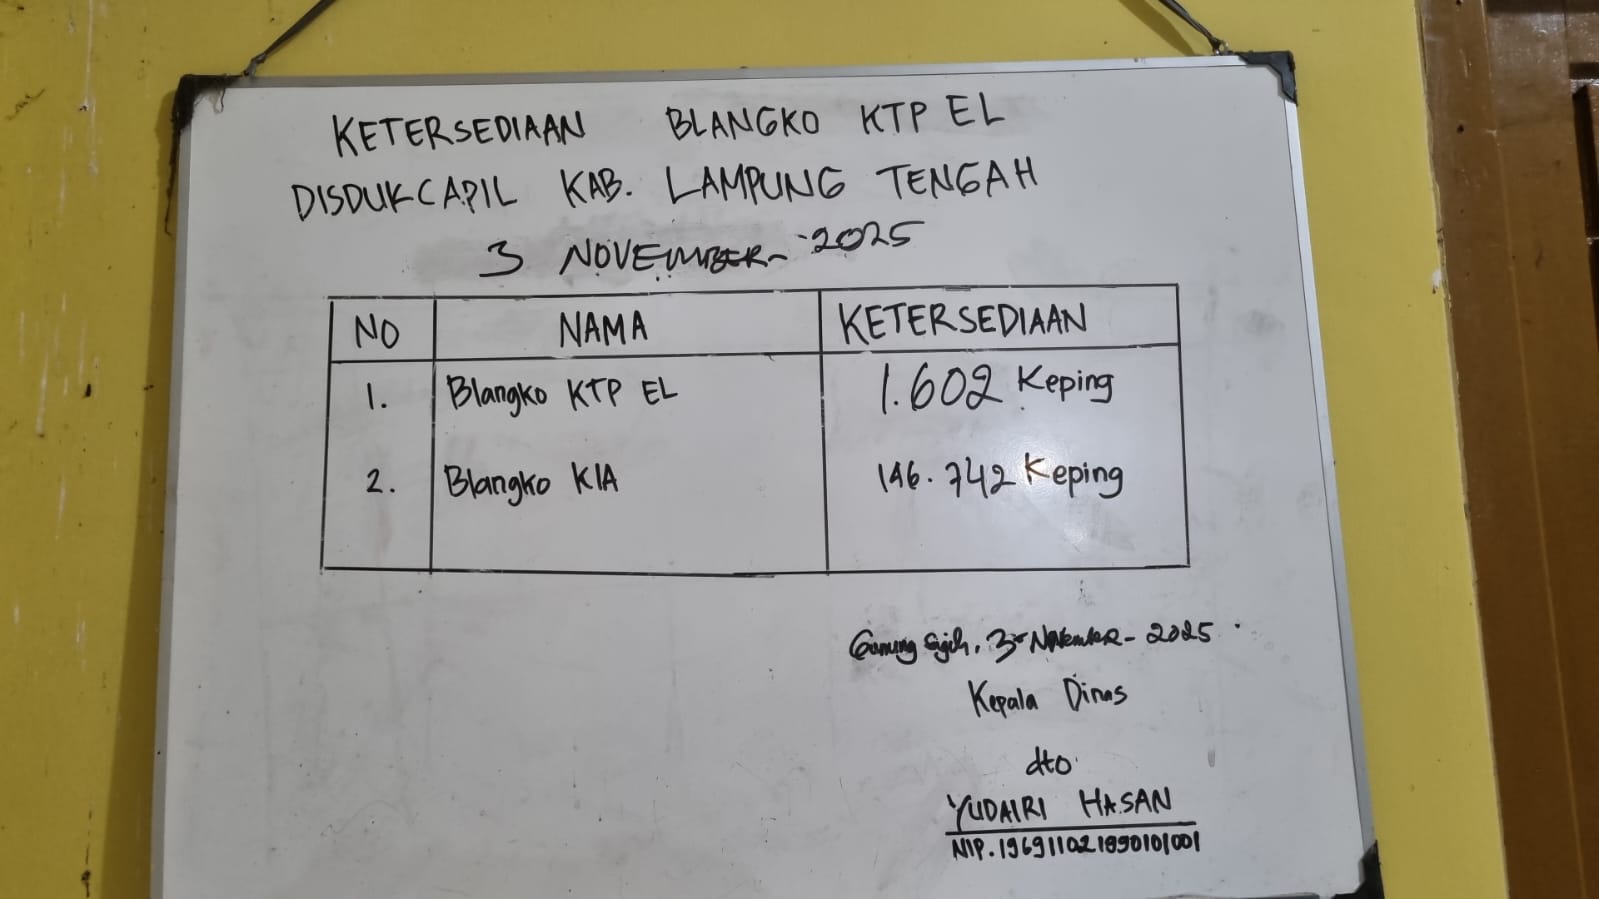 KETERSEDIAAN BLANGKO KTP EL
DISDUKCAPIL KAB. LAMPUNG TENGAH
3 NOVEMBER - 2025
NO NAMA KETERSEDIAAN
1. Blangko KTP EL 1.602 Keping
2. Blangko KIA 146.742 Keping
Gunung Sugih, 3 - November - 2025
Kepala Dinas
dto
YUDAIRI HASAN
NIP. 196911021990101001